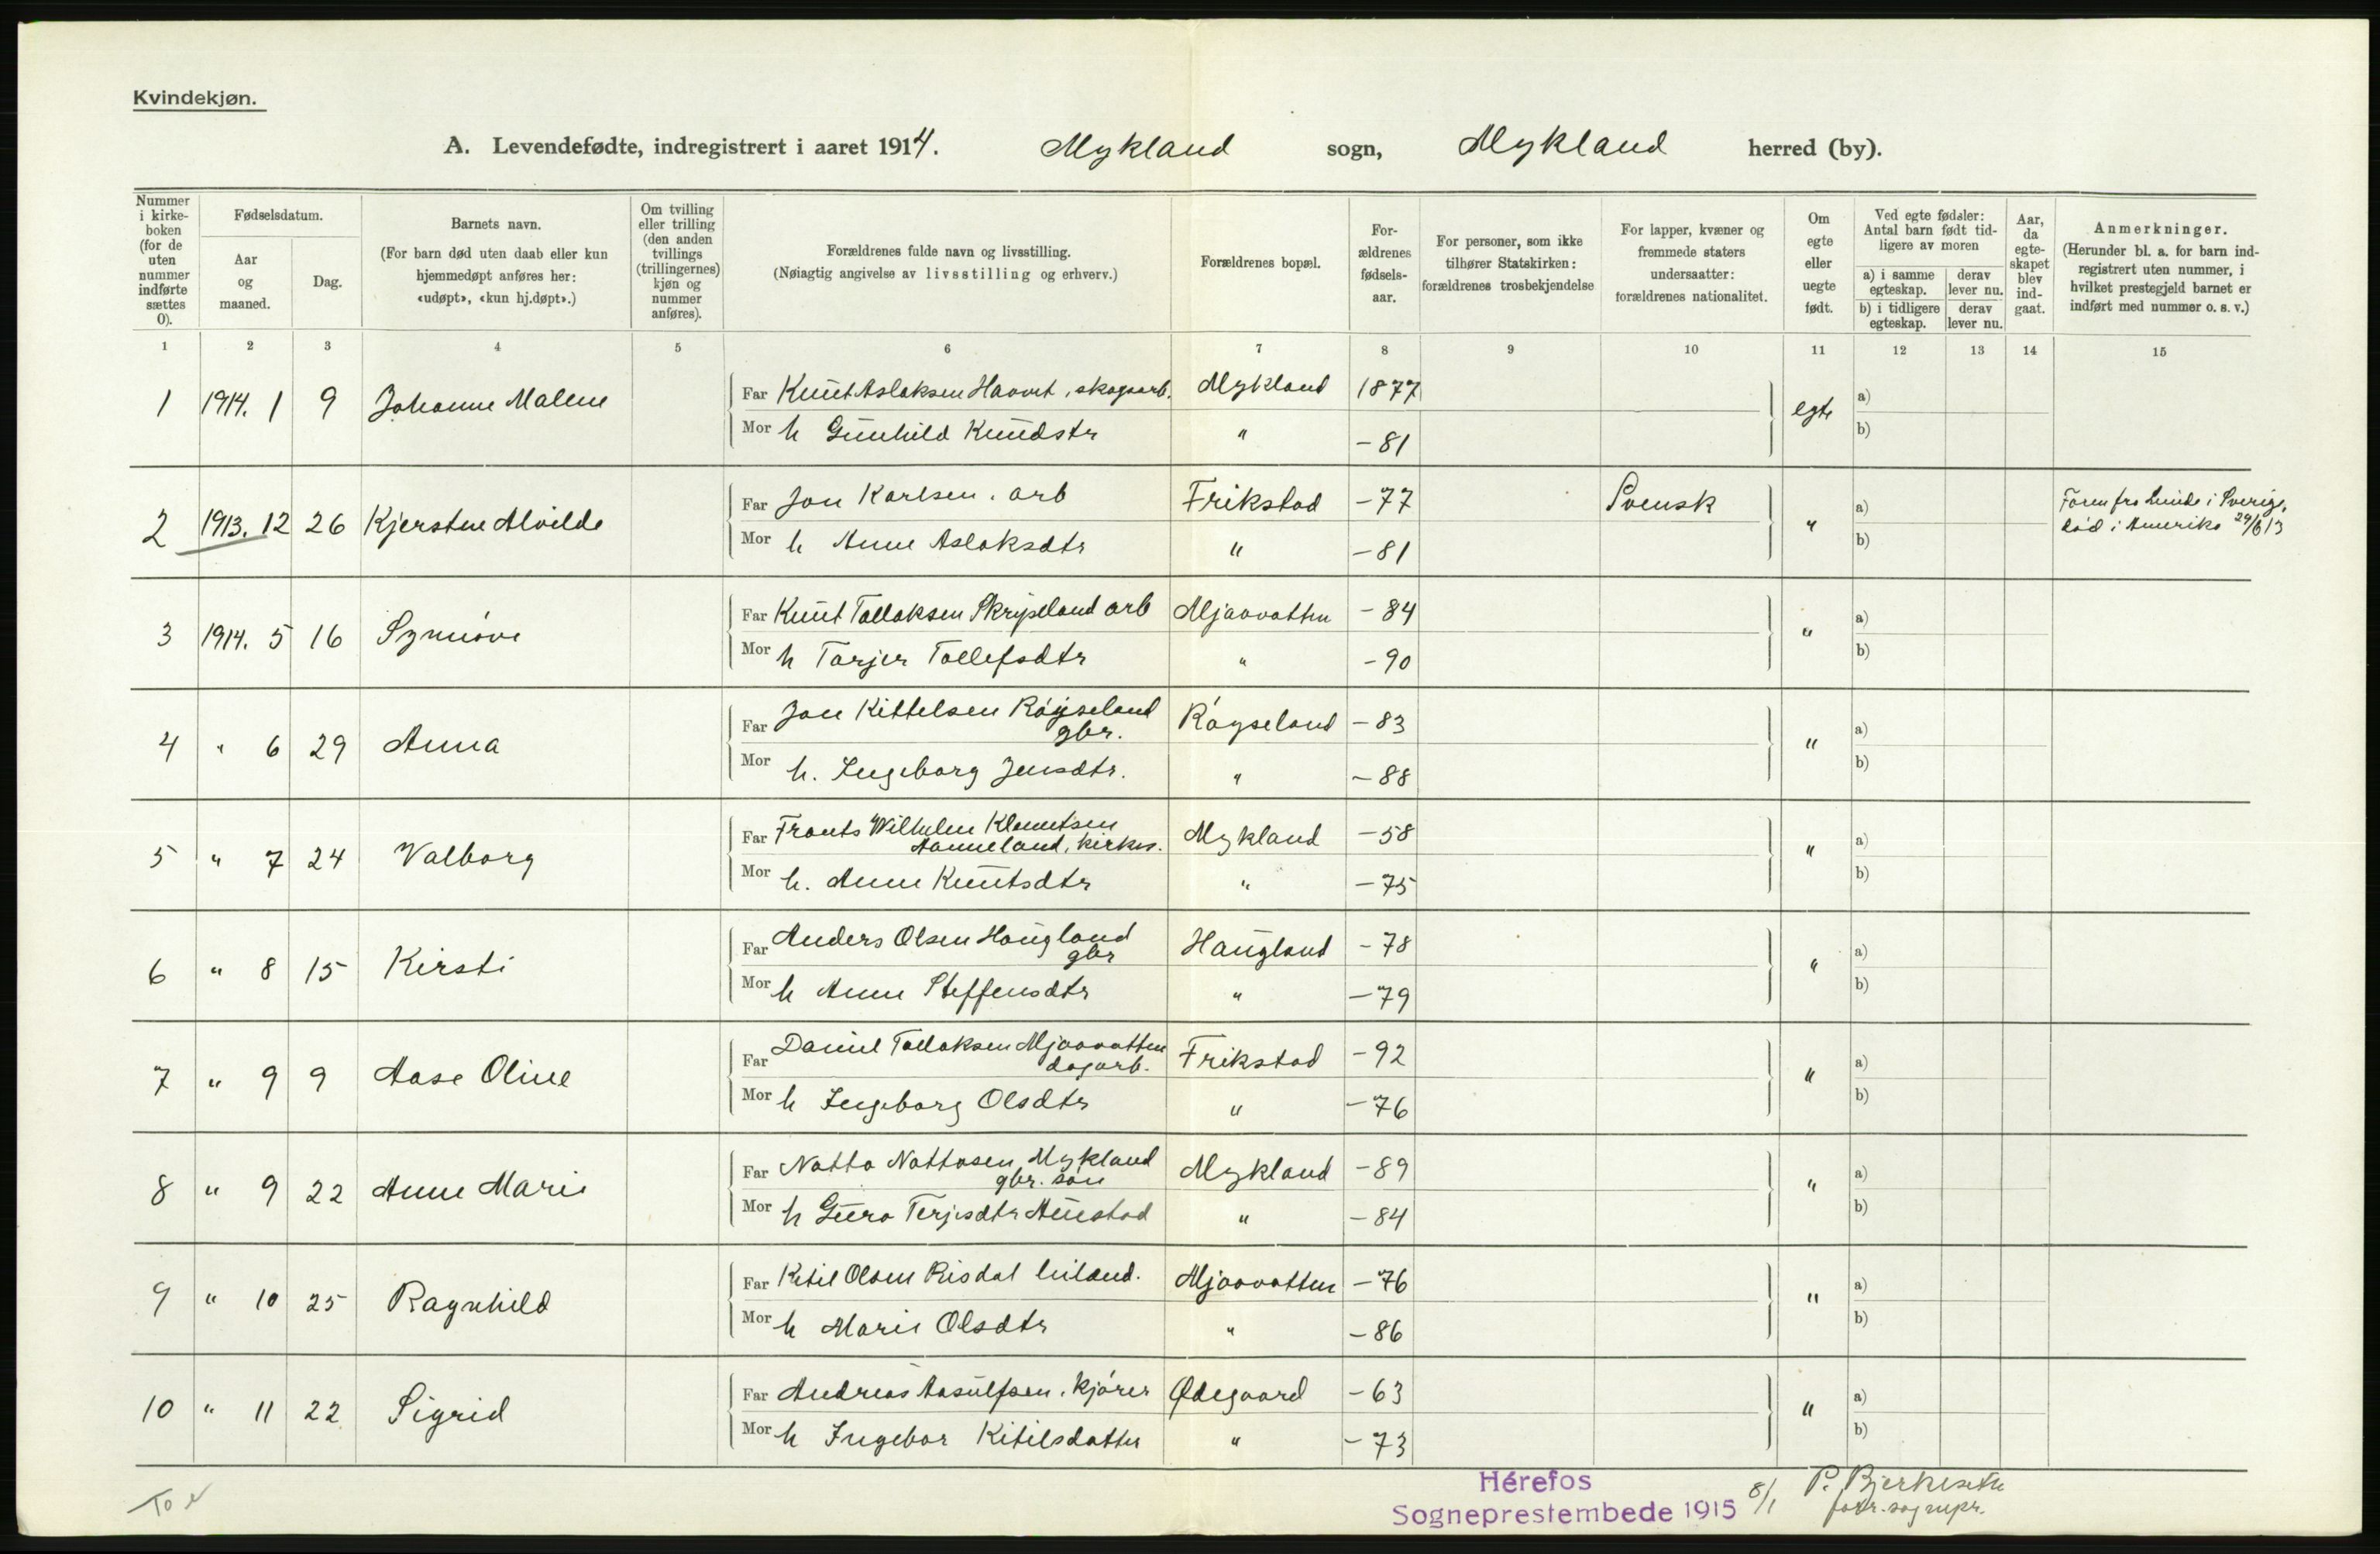 Kvindekjøn.
A. Levendefødte, indregistrert i aaret 1914. Mykland sogn, Mykland herred (by).
Nummer i kirke-boken (for de uten nummer indførte sættes 0).
Fødselsdatum.
Aar og maaned.
Dag.
Barnets navn.
(For barn død uten daab eller kun hjemmedøpt anføres her: «udøpt», «kun hj.døpt».)
Om tvilling eller trilling (den anden tvillings (trillingernes) kjøn og nummer anføres).
Forældrenes fulde navn og livsstilling.
(Nøiagtig angivelse av livsstilling og erhverv.)
Forældrenes bopæl.
For-ældrenes fødsels-aar.
For personer, som ikke tilhører Statskirken: forældrenes trosbekjendelse
For lapper, kvæner og fremmede staters undersaatter: forældrenes nationalitet.
Om egte eller uegte født.
Ved egte fødsler: Antal barn født tid-ligere av moren
a) i samme egteskap.
derav lever nu.
b) i tidligere egteskap.
derav lever nu.
Aar, da egte-skapet blev ind-gaat.
Anmerkninger.
(Herunder bl. a. for barn ind-registrert uten nummer, i hvilket prestegjeld barnet er indført med nummer o. s. v.)
1 2 3 4 5 6 7 8 9 10 11 12 13 14 15
1 1914. 1 9 Johanne Malene Far Knut Aslaksen Haavet, skogsarb. Mykland 1877 egte a)
Mor h Gunhild Knudstr " -81 b)
2 1913. 12 26 Kjerstine Alvilde Far Jon Karlsen. arb Frikstad -77 Svensk " a) Faren fra Lunde i Sverige,
død i Amerika 29/6 13
Mor h Anne Aslaksdtr " -81 b)
3 1914. 5 16 Synnöve Far Knut Tallaksen Skripeland arb Mjaavatten -84 " a)
Mor h Tarjer Tollefsdtr " -90 b)
4 " 6 29 Anna Far Jon Kittelsen Röyseland
gbr. Röyseland -83 " a)
Mor h. Ingeborg Jensdtr. " -88 b)
5 " 7 24 Valborg Far Frants Wilhelm Klemetsen
Aanneland, kirkes. Mykland -58 " a)
Mor h. Anne Knutsdtr " -75 b)
6 " 8 15 Kirsti Far Anders Olsen Haugland
gbr Haugland -78 " a)
Mor h Anne Steffensdtr " -79 b)
7 " 9 9 Aase Oline Far Daniel Tallaksen Mjaavatten
dagarb. Frikstad -92 " a)
Mor h Ingeborg Olsdtr " -76 b)
8 " 9 22 Anne Marie Far Natta Nattasen Mykland
gbr. sön Mykland -89 " a)
Mor h Guro Terjesdtr Austad " -84 b)
9 " 10 25 Ragnhild Far Ketil Olsen Risdal leiland. Mjaavatten -76 " a)
Mor h Marie Olsdtr " -86 b)
10 " 11 22 Sigrid Far Andreas Aasulfsen. kjörer Ødegaard -63 " a)
Mor h Ingebor Ketilsdatter " -73 b)
Hérefos
Sogneprestembede 1915 8/1 P. Bjerkseth